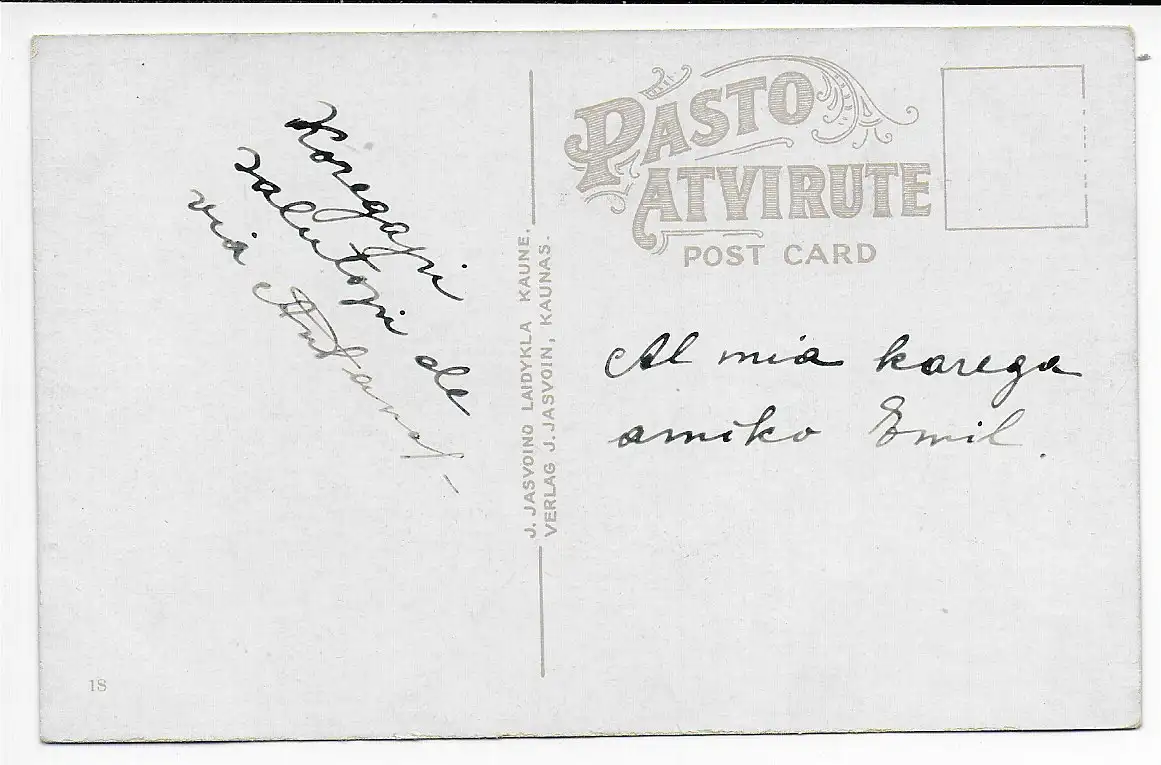 Koregapi
salutopi de
via Antanas
J. JASVOINO LAIDYKLA KAUNE.
VERLAG J. JASVOIN, KAUNAS.
PASTO
ATVIRUTE
POST CARD
Al mia korega
amiko Emil.
18